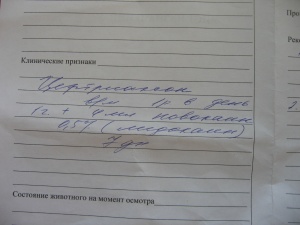 Клинические признаки
Цефтриаксон
1 р в день
1 г. + 4 мл новокаин
0,5% (лидокаин)
7 дн
Состояние животного на момент осмотра
При
Рек